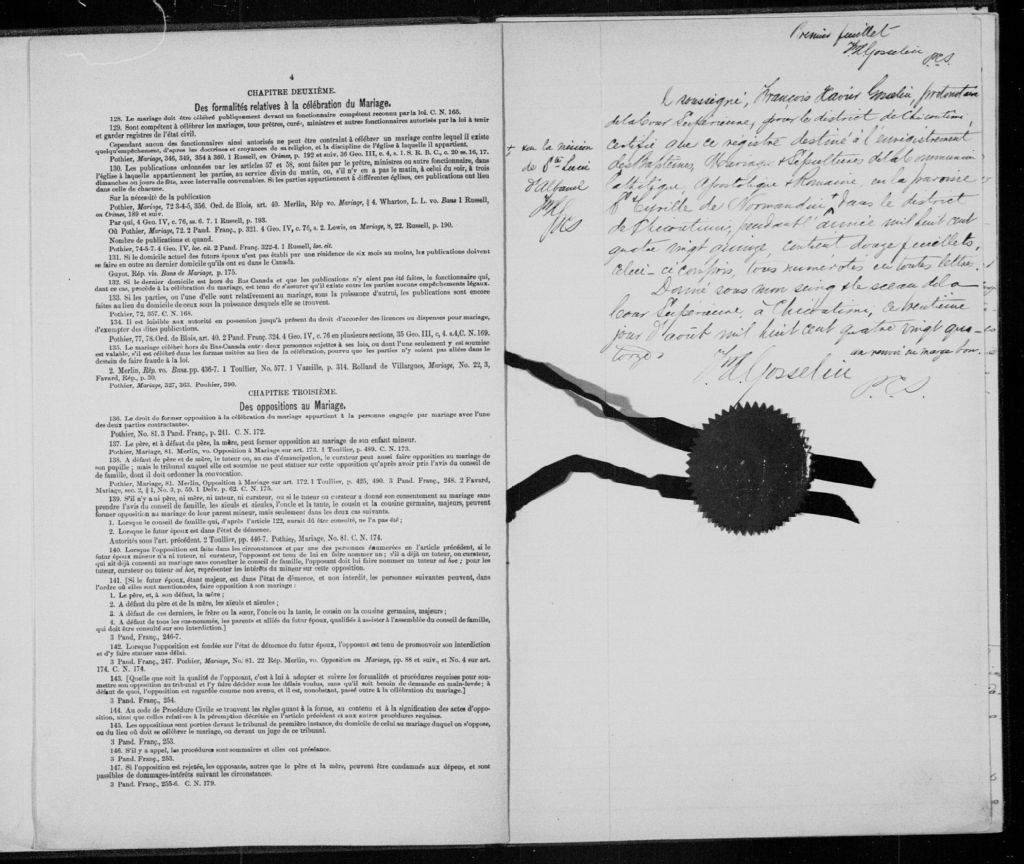 4
CHAPITRE DEUXIÈME.
Des formalités relatives à la célébration du Mariage.
128. Le mariage doit être célébré publiquement devant un fonctionnaire compétent reconnu par la loi. C. N. 165.
129. Sont compétents à célébrer les mariages, tous prêtres, curés, ministres et autres fonctionnaires autorisés par la loi à tenir
et garder registres de l'état civil.
Cependant aucun des fonctionnaires ainsi autorisés ne peut être contraint à célébrer un mariage contre lequel il existe
quelqu'empêchement, d'après les doctrines et croyances de sa religion, et la discipline de l'église à laquelle il appartient.
Pothier, Mariage, 346, 349, 354 à 360, 1 Russell, en Crimes, p. 192 et suiv. 36 Geo. III, c. 4, s. 1. S. R. B. C., c. 20 ss. 16, 17.
130. Les publications ordonnées par les articles 57 et 58, sont faites par le prêtre, ministre ou autre fonctionnaire, dans
l'église à laquelle appartiennent les parties, au service divin du matin, ou, s'il n'y en a pas le matin, à celui du soir, à trois
dimanches ou jours de fête, avec intervalle convenables. Si les parties appartiennent à différentes églises, ces publications ont lieu
dans celle de chacune.
Sur la nécessité de la publication
Pothier, Mariage, 72 3-4-5, 356. Ord. de Blois, art. 40. Merlin, Rép vo. Mariage, § 4. Wharton, L. L. vo. Bans 1 Russell,
en Crimes, 189 et suiv.
Par qui, 4 Geo. IV, c. 76, ss. 6. 7. 1 Russell, p. 193.
Où Pothier, Mariage, 72. 2 Pand. Franç., p. 321. 4 Geo. IV, c. 76, s. 2. Lewis, on Mariage, 8, 22. Russell, p. 190.
Nombre de publications et quand.
Pothier, 74-5-7. 4 Geo. IV, loc. cit. 2 Pand. Franç. 322-4. 1 Russell, loc. cit.
131. Si le domicile actuel des futurs époux n'est pas établi par une résidence de six mois au moins, les publications doivent
se faire en outre au dernier domicile qu'ils ont eu dans le Canada.
Guyot, Rép. vis. Bans de Mariage, p. 175.
132. Si le dernier domicile est hors du Bas Canada et que les publications n'y aient pas été faites, le fonctionnaire qui,
dans ce cas, procède à la célébration du mariage, est tenu de s'assurer qu'il existe entre les parties aucuns empêchements légaux.
133. Si les parties, ou l'une d'elle sont relativement au mariage, sous la puissance d'autrui, les publications sont encore
faites au lieu du domicile de ceux sous la puissance desquels elle se trouvent.
Pothier, 72, 357. C. N. 168.
134. Il est loisible aux autorité en possession jusqu'à présent du droit d'accorder des licences ou dispenses pour mariage,
d'exempter des dites publications.
Pothier, 77, 78. Ord. de Blois, art. 40. 2 Pand. Franç. 324. 4 Geo. IV, c. 76 en plusieurs sections, 35 Geo. III, c. 4. s.4, C. N. 169.
135. Le mariage célébré hors de Bas-Canada entre deux personnes sujettes à ses lois, ou dont l'une seulement y est soumise
est valable, s'il est célébré dans les formes usitées au lieu de la célébration, pourvu que les parties n'y soient pas allées dans le
dessein de faire fraude à la loi.
2. Merlin, Rép. vo. Bans. pp. 436-7. 1 Toullier, No. 577. 1 Vazille, p. 314. Rolland de Villargues, Mariage, No. 22, 3,
Favard, Rép., p. 30.
Pothier, Mariage, 327, 363. Pouhier, 390.
CHAPITRE TROISIÈME.
Des oppositions au Mariage.
136. Le droit de former opposition à la célébration du mariage appartient à la personne engagée par mariage avec l'une
des deux parties contractantes.
Pothier, No. 81. 3 Pand. Franç., p. 241. C. N. 172.
137. Le père, et à défaut du père, la mère, peut former opposition au mariage de son enfant mineur.
Pothier, Mariage, 81. Merlin, vo. Opposition à Mariage sur art. 173. 1 Toullier, p. 489. C. N. 173.
138. A défaut de père et de mère, le tuteur ou, au cas d'émancipation, le curateur peut aussi faire opposition au mariage de
son pupille ; mais le tribunal auquel elle est soumise ne peut statuer sur cette opposition qu'après avoir pris l'avis du conseil de
famille, dont il doit ordonner la convocation.
Pothier, Mariage, 81. Merlin, Opposition à Mariage sur art. 172. 1 Toullier, p. 425, 490. 3 Pand. Franç., 248. 2 Favard,
Mariage, sec. 2, § 1, No. 3, p. 59. 1 Delv. p. 62. C. N. 175.
139. S'il n'y a ni père, ni mère, ni tuteur, ni curateur, ou si le tuteur ou curateur a donné son consentement au mariage sans
prendre l'avis du conseil de famille, les aïeuls et aïeules, l'oncle et la tante, le cousin et la cousine germains, majeurs, peuvent
former opposition au mariage de leur parent mineur, mais seulement dans les deux cas suivants.
1. Lorsque le conseil de famille qui, d'après l'article 122, aurait dû être consulté, ne l'a pas été ;
2. Lorsque le futur époux est dans l'état de démence.
Autorités sous l'art. précédent. 2 Toullier, pp. 446-7. Pothier, Mariage, No. 81. C. N. 174.
140. Lorsque l'opposition est faite dans les circonstances et par une des personnes énumérées en l'article précédent, si le
futur époux mineur n'a ni tuteur, ni curateur, l'opposant est tenu de lui en faire nommer un ; s'il a déjà un tuteur, ou curateur,
qui ait déjà consenti au mariage sans consulter le conseil de famille, l'opposant doit lui faire nommer un tuteur ad hoc ; pour les
tuteur, curateur ou tuteur ad hoc, représenter les intérêts du mineur sur cette opposition.
141. [Si le futur époux, étant majeur, est dans l'état de démence, et non interdit, les personnes suivantes peuvent, dans
l'ordre où elles sont mentionnées, faire opposition à son mariage :
1. Le père, et, à son défaut, la mère ;
2. A défaut du père et de la mère, les aïeuls et aïeules ;
3. A défaut de ces derniers, le frère ou la sœur, l'oncle ou la tante, le cousin ou la cousine germains, majeurs ;
4. A défaut de tous les sus-nommés, les parents et alliés du futur époux, qualifiés à assister à l'assemblée du conseil de famille,
qui doit être consulté sur son interdiction.]
3 Pand, Franç., 246-7.
142. Lorsque l'opposition est fondée sur l'état de démence du futur époux, l'opposant est tenu de promouvoir son interdiction
et d'y faire statuer sans délai.
3 Pand. Franç., 247. Pothier, Mariage, No. 81. 22 Rép. Merlin, vo. Opposition au Mariage, pp. 88 et suiv., et No. 4 sur art.
174. C. N. 174.
143. [Quelque que soit la qualité de l'opposant, c'est à lui à adopter et suivre les formalités et procédures requises pour sou-
mettre son opposition au tribunal et l'y faire décider sous les délais voulus, sans qu'il soit besoin de demande en main-levée ; à
défaut de quoi, l'opposition est regardée comme non avenu, et il est, nonobstant, passé outre à la célébration du mariage.]
3 Pand. Franç., 254.
144. Au code de Procédure Civile se trouvent les règles quant à la forme, au contenu et à la signification des actes d'oppo-
sition, ainsi que celles relatives à la péremption décrétée en l'article précédent et aux autres procédures requises.
145. Les oppositions sont portées devant le tribunal de première instance, du domicile de celui au mariage duquel on s'oppose,
ou du lieu où doit se célébrer le mariage, ou devant un juge de ce tribunal.
3 Pand. Franç., 253.
146. S'il y a appel, les procédures sont sommaires et elles ont préséance.
3 Pand. Franç., 253.
147. Si l'opposition est rejetée, les opposants, autres que le père et la mère, peuvent être condamnés aux dépens, et sont
passibles de dommages-intérêts suivant les circonstances.
3 Pand. Franç., 255-6. C. N. 179.
Premier feuillet
F.X. Gosselin
P.C.S.
Je soussigné, François Xavier Gosselin, protonotaire
de la Cour Supérieure, pour le district de Chicoutimi,
certifie que ce registre destiné à l'enregistrement
des Baptêmes, Mariages & Sépultures de la Communion
Catholique, Apostolique & Romaine, en la paroisse
St Cyrille de Normandin + dans le district
de Chicoutimi, pendant l'année mil huit cent
quatre vingt quinze, contient douze feuillets,
celui-ci compris, tous numérotés en toutes lettres.
Donné sous mon seing & le sceau de la
Cour Supérieure, à Chicoutimi, ce trentième
jour d'août mil huit cent quatre vingt qua-
torze.
un renvoi en marge bon.
F.X. Gosselin
P.C.S.
+ sur la mission
de Ste Lucie
d'Albanel
FXG
PCS